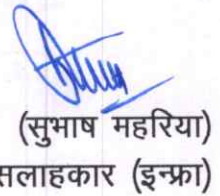 (सुभाष महरिया)
सलाहकार (इन्फ्रा)